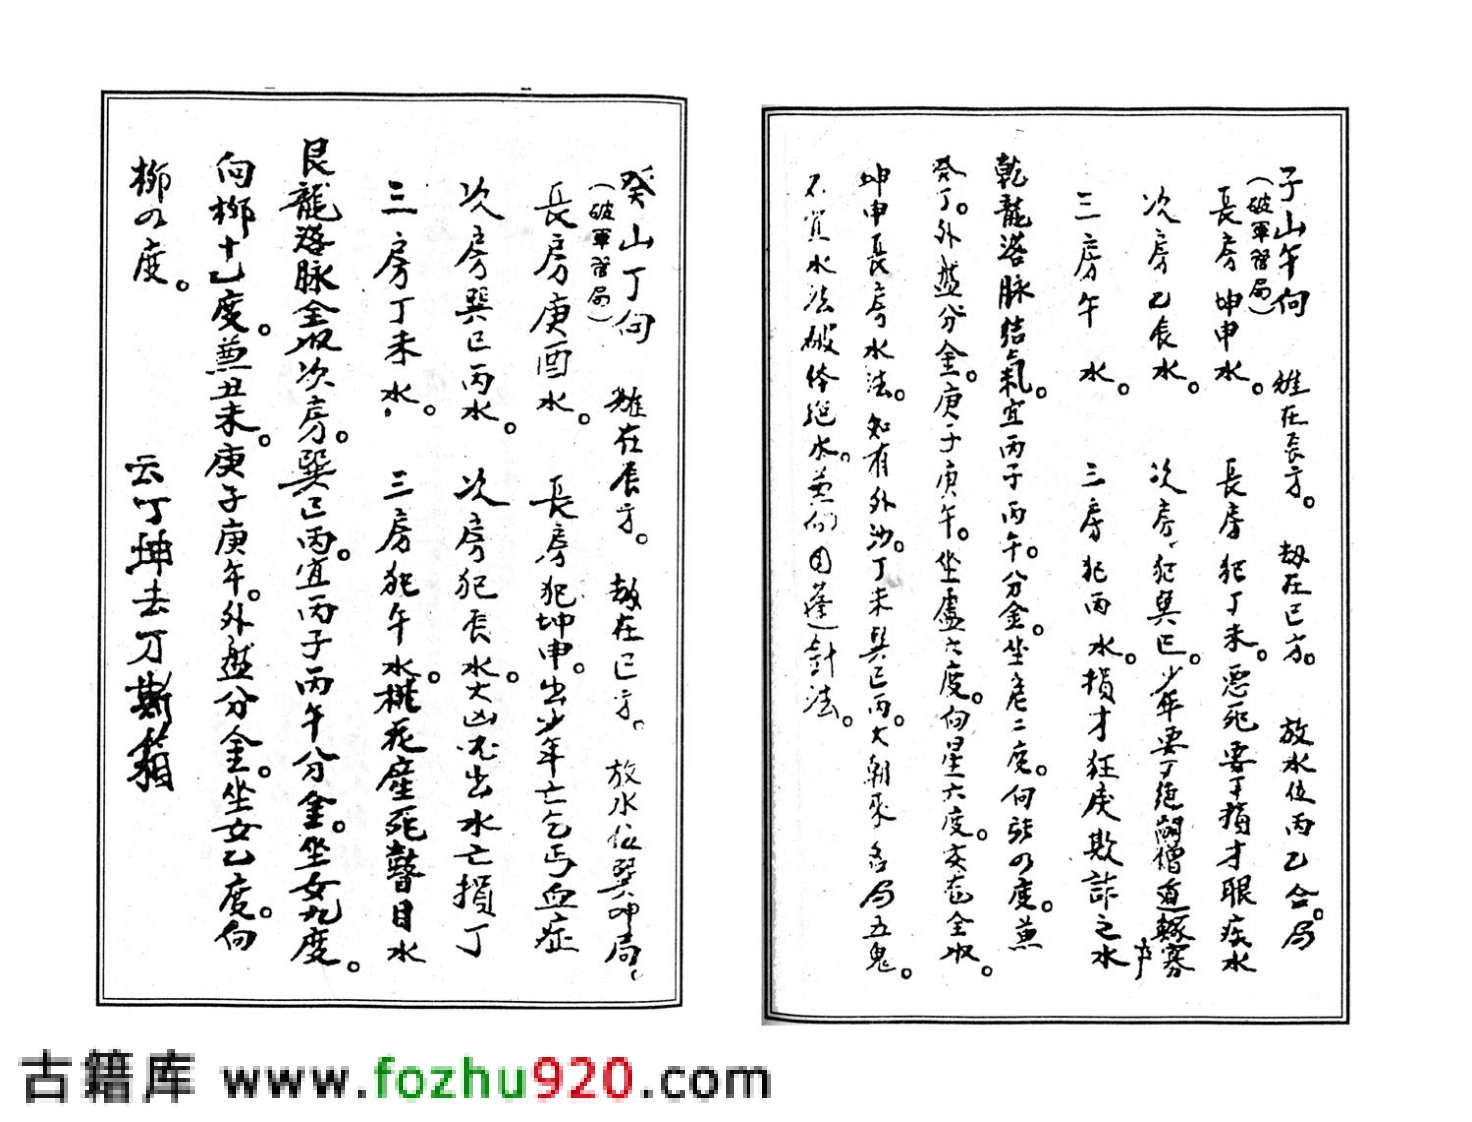 子山午向 在辰方。 劫在巳方。 放水位丙乙合。局
(破軍管局)
長房坤申水。 長房犯丁未。惡死要丁損才眼疾水
次房乙辰水。 次房犯巽巳。少年要丁絶嗣僧道寡
三房午水。 三房犯丙水。損才狂戾欺詐之水
乾龍落脉結氣。宜丙子丙午。分金。坐危二度。向張四度。兼
癸丁。外盤分金。庚子庚午。坐虛六度。向星六度。交危全收。
坤申長房水法。知有外沙。丁未巽巳丙。大朝來名局五鬼。
不宜水法破体絕水。兼向因蓬針法。
癸山丁向 在辰方。 劫在巳方。 放水位巽坤局。
(破軍管局)
長房庚酉水。 長房犯坤申。出少年亡乞丐血症
次房巽巳丙水。 次房犯辰水。大凶出水亡損丁
三房丁未水。 三房犯午水。桃花產死瞽目水
艮龍落脉全收次房。巽巳丙。宜丙子丙午分金。坐女九度。
向柳十乙度。兼丑未。庚子庚午。外盤分金。坐女乙度。向
柳四度。 云丁坤去丁斯箱
古籍库 www.fozhu920.com